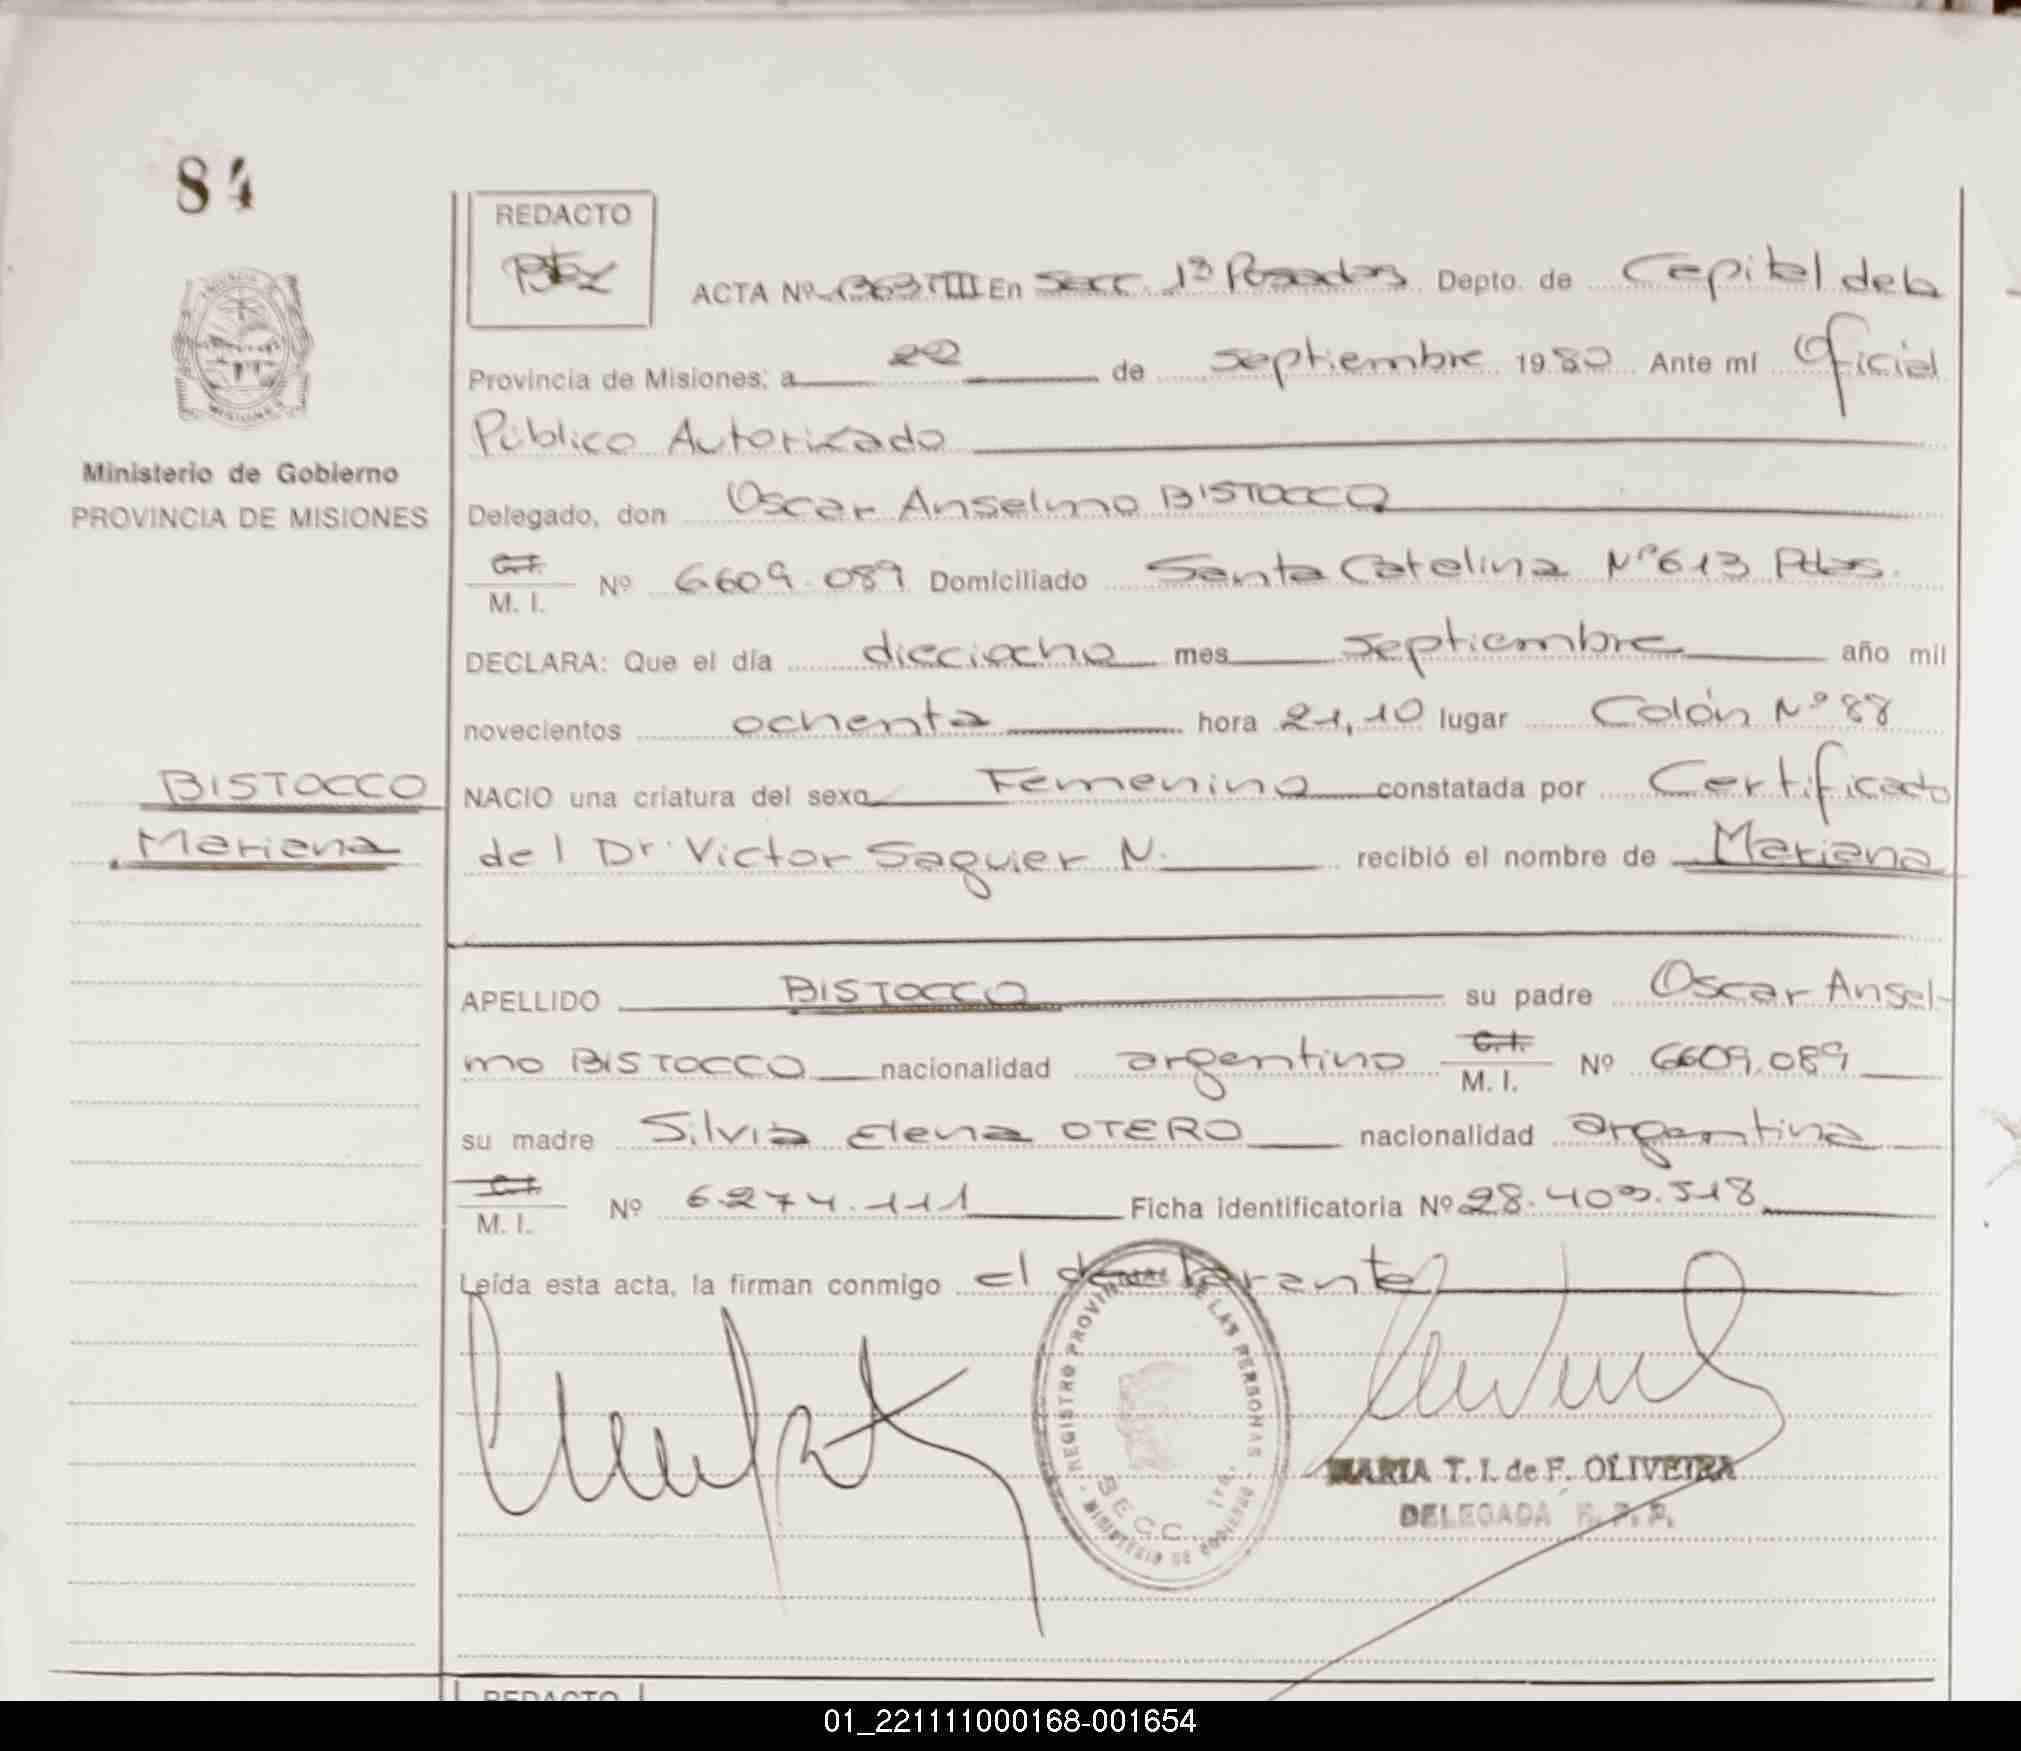 84
REDACTO
ACTA Nº 1363 TIII En Secc. 1ª Posadas Depto. de Capital de la
Provincia de Misiones; a 22 de septiembre 1980 Ante mí Oficial
Público Autorizado
Ministerio de Gobierno
PROVINCIA DE MISIONES
Delegado, don Oscar Anselmo BISTOCCO
C.I.
M. I. Nº 6609.089 Domiciliado Santa Catalina Nº 613 Pdas.
DECLARA: Que el día dieciocho mes septiembre año mil
novecientos ochenta hora 21,10 lugar Colón Nº 88
BISTOCCO
Mariana
NACIO una criatura del sexo Femenino constatada por Certificado
del Dr. Victor Saguier N. recibió el nombre de Mariana
APELLIDO BISTOCCO su padre Oscar Ansel-
mo BISTOCCO nacionalidad argentino C.I. M. I. Nº 6609.089
su madre Silvia Elena OTERO nacionalidad argentina
C.I.
M. I. Nº 6.274.111 Ficha identificatoria Nº 28.409.518
Leída esta acta, la firman conmigo el declarante
REGISTRO PROVINCIAL DE LAS PERSONAS
SECC. 1ra.
MINISTERIO DE GOBIERNO
MARIA T. I. de F. OLIVEIRA
DELEGADA R. P. P.
REDACTO
01_221111000168-001654